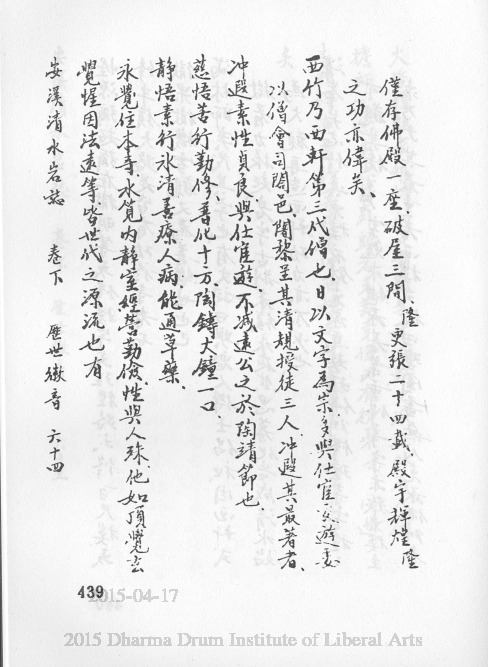 僅存佛殿一座、破屋三間、隆更張二十四載、殿宇輝煌隆
之功亦偉矣、
西竹乃西軒第三代僧也、日以文字為宗、多與仕宦交遊委
以僧會司闔邑、闍黎呈其清規、授徒三人、冲遐其最著者、
冲遐素性貞良、與仕宦遊、不減遠公之於陶靖節也、
慈悟苦行勤修、普化十方、陶鑄大鐘一口、
静悟素行氷清善療人病、能通草藥、
永覺住本寺、永覺內静室經營勤儉、性與人殊他如頂覺玄
覺惺因法遠等、皆世代之源流也有
安溪清水岩誌 卷下 歷世徽音 六十四
439
2015-04-17
2015 Dharma Drum Institute of Liberal Arts